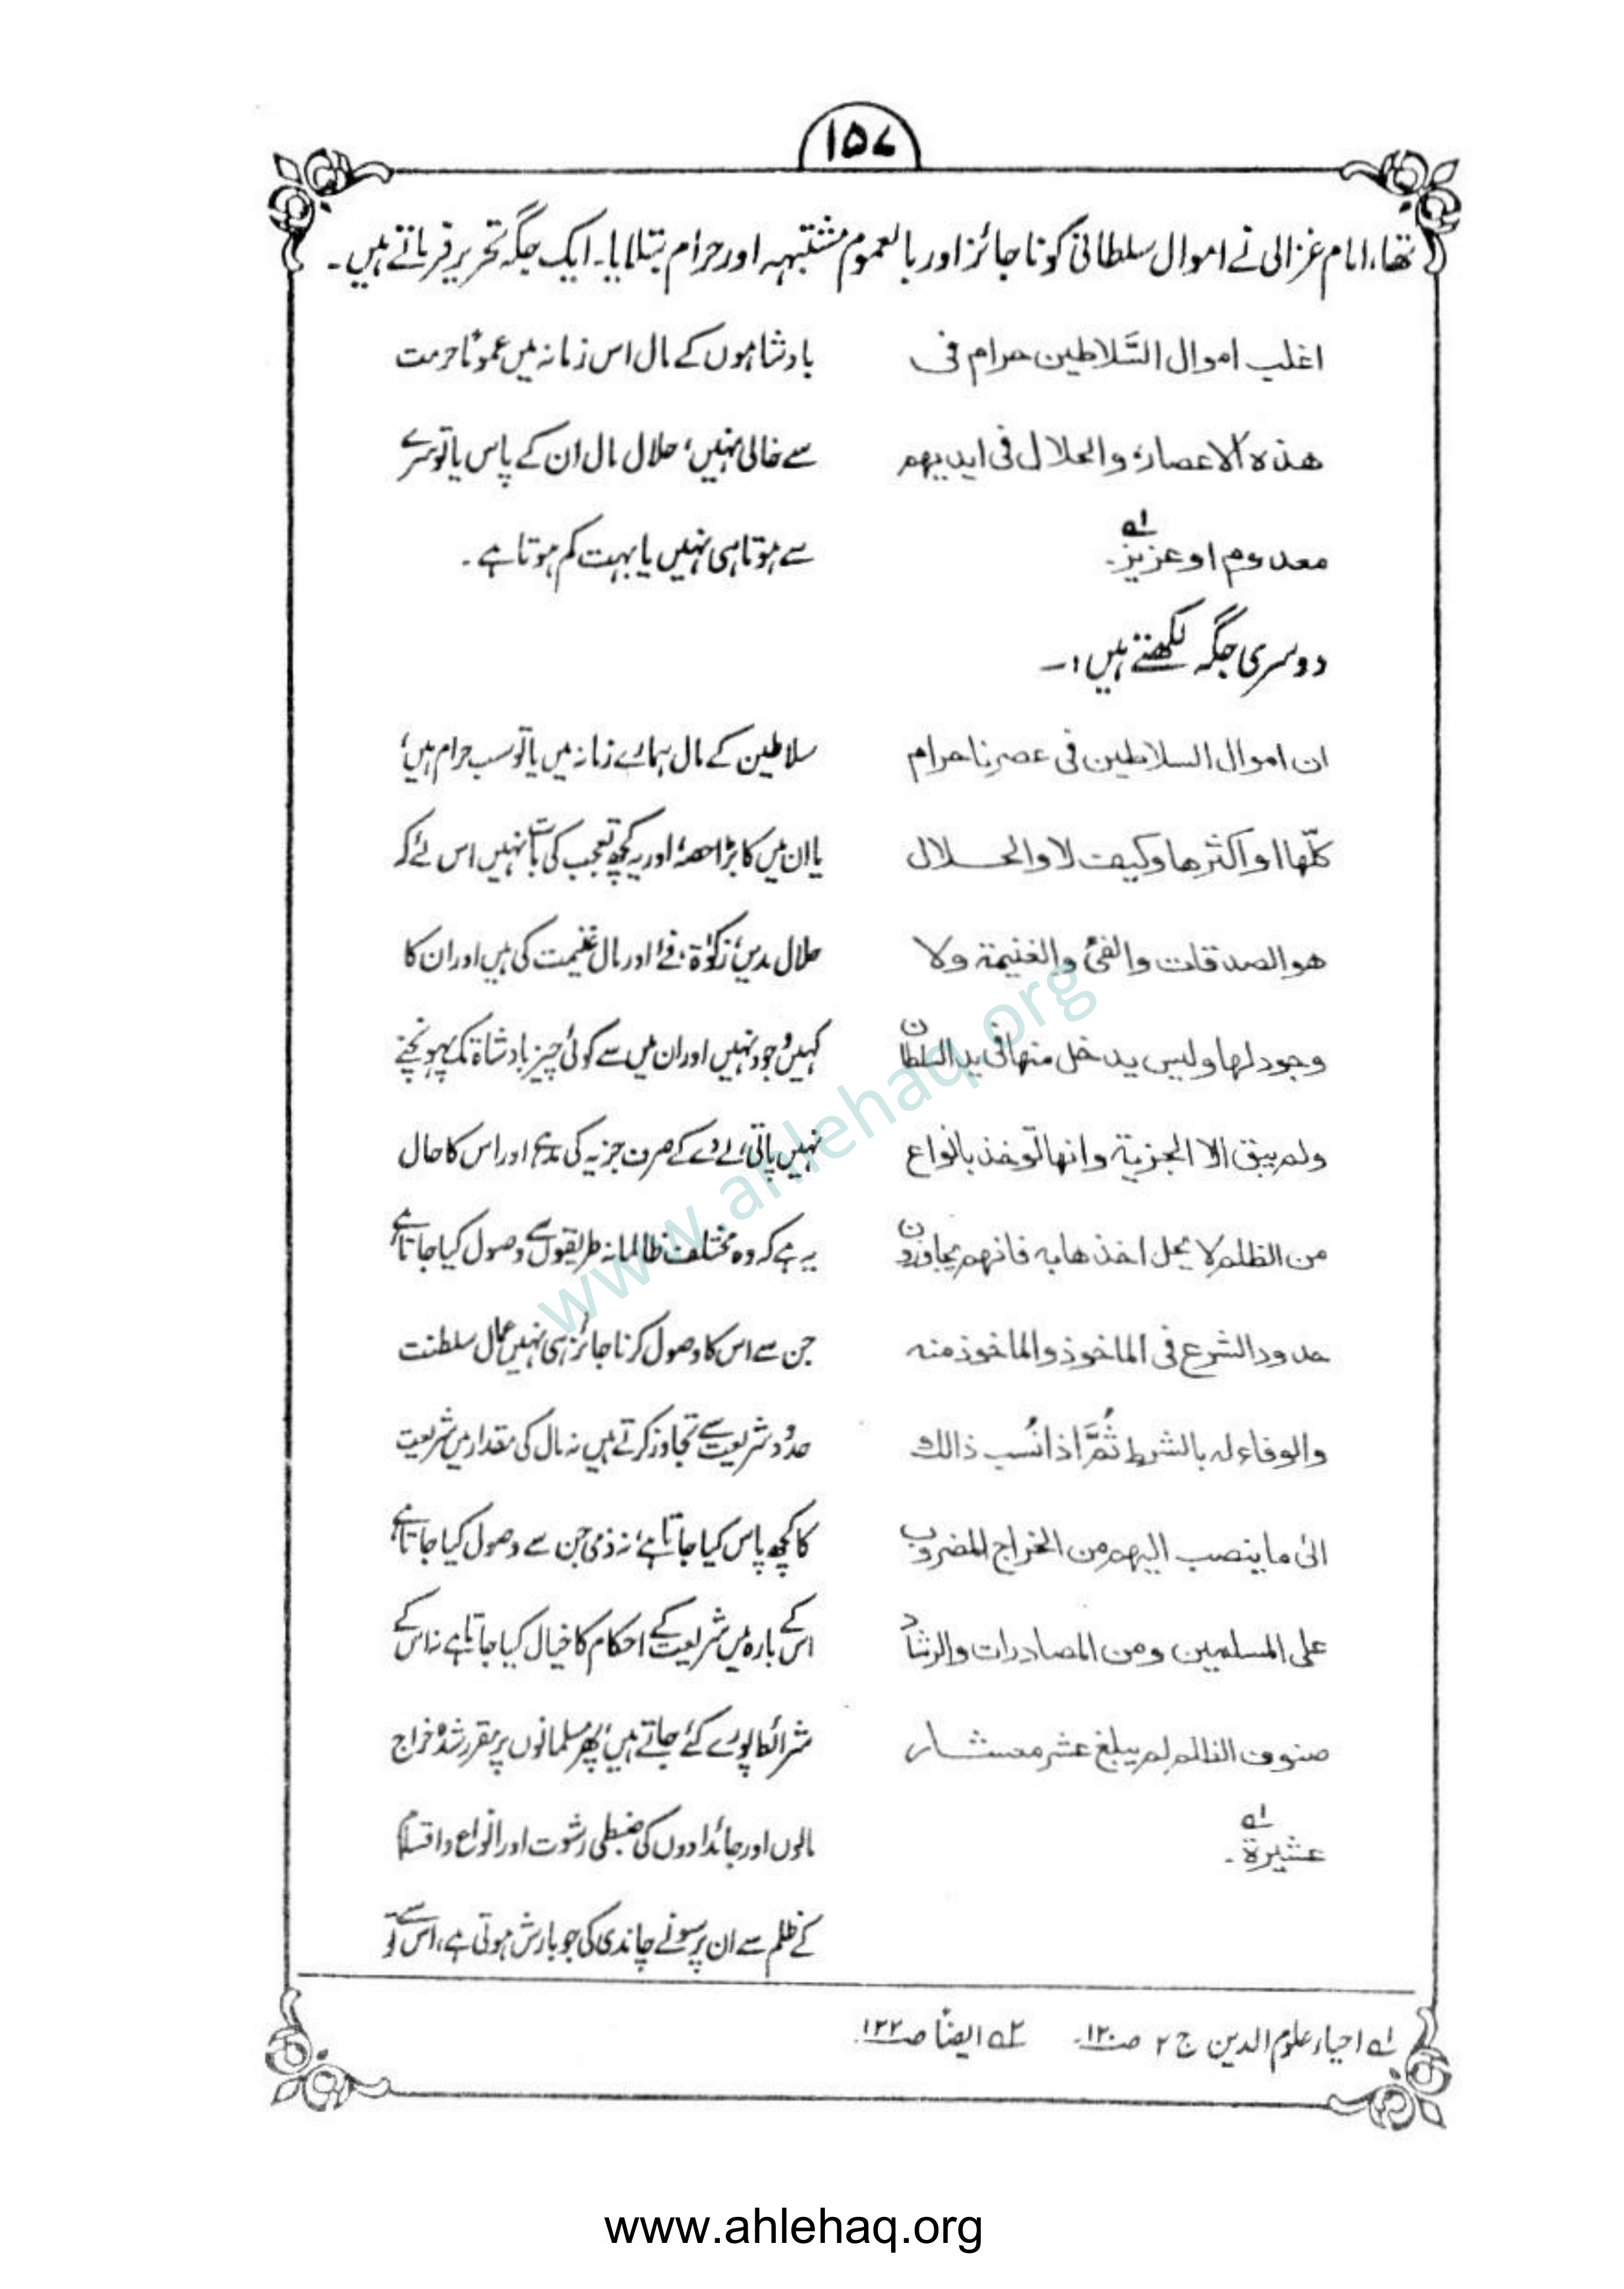 ۱۵۷
تھا، امام غزالی نے اموال سلطانی کو ناجائز اور بالعموم مشتبہہ اور حرام بتلایا۔ ایک جگہ تحریر فرماتے ہیں۔
اغلب اموال السَّلاطین حرام فی
هذه الاعصار، والحلال فی ایدیهم
معدوم او عزیز۔ ؎۱
بادشاہوں کے مال اس زمانہ میں عموماً حرمت
سے خالی نہیں، حلال مال ان کے پاس یا تو سرے
سے ہوتا ہی نہیں یا بہت کم ہوتا ہے۔
دوسری جگہ لکھتے ہیں:۔
ان اموال السلاطین فی عصرنا حرام
کلّها او اکثرها وکیف لا والحلال
هو الصدقات والفئ والغنیمة ولا
وجود لها ولیس یدخل منها فی ید السلطان
ولم یبق الا الجزیة وانها تؤخذ بانواع
من الظلم لا یحل اخذها به فانهم یجاوزون
حدود الشرع فی الماخوذ والماخوذ منه
والوفاء له بالشرط ثُمَّ اذا نُسب ذالك
الیٰ ما ینصب الیهم من الخراج المضروب
علی المسلمین ومن المصادرات والرشاد
صنوف الظلم لم یبلغ عشر معشار
عشیرة۔ ؎۱
سلاطین کے مال ہمارے زمانہ میں یا تو سب حرام ہیں،
یا ان میں کا بڑا حصہ، اور یہ کچھ تعجب کی بات نہیں اس لئے کہ
حلال مدیں، زکوٰۃ، فے، اور مال غنیمت کی ہیں اور ان کا
کہیں وجود نہیں اور ان میں سے کوئی چیز بادشاہ تک پہونچنے
نہیں پاتی، لے دے کے صرف جزیہ کی مد ہے اور اس کا حال
یہ ہے کہ وہ مختلف ظالمانہ طریقوں سے وصول کیا جاتا ہے،
جن سے اس کا وصول کرنا جائز ہی نہیں، عمال سلطنت
حدود شریعت سے تجاوز کرتے ہیں نہ مال کی مقدار میں شریعت
کا کچھ پاس کیا جاتا ہے، نہ ذمی جن سے وصول کیا جاتا ہے،
اس کے بارہ میں شریعت کے احکام کا خیال کیا جاتا ہے نہ اس کے
شرائط پورے کئے جاتے ہیں، پھر مسلمانوں پر مقرر شدہ خراج
مالوں اور جائدادوں کی ضبطی رشوت اور انواع واقسام
کے ظلم سے ان پر سونے چاندی کی جو بارش ہوتی ہے، اس سے تو
؎۱ احیاء علوم الدین ج ۲ ص۱۲۰۔ ؎۲ ایضاً ص۱۲۲۔
www.ahlehaq.org
www.ahlehaq.org